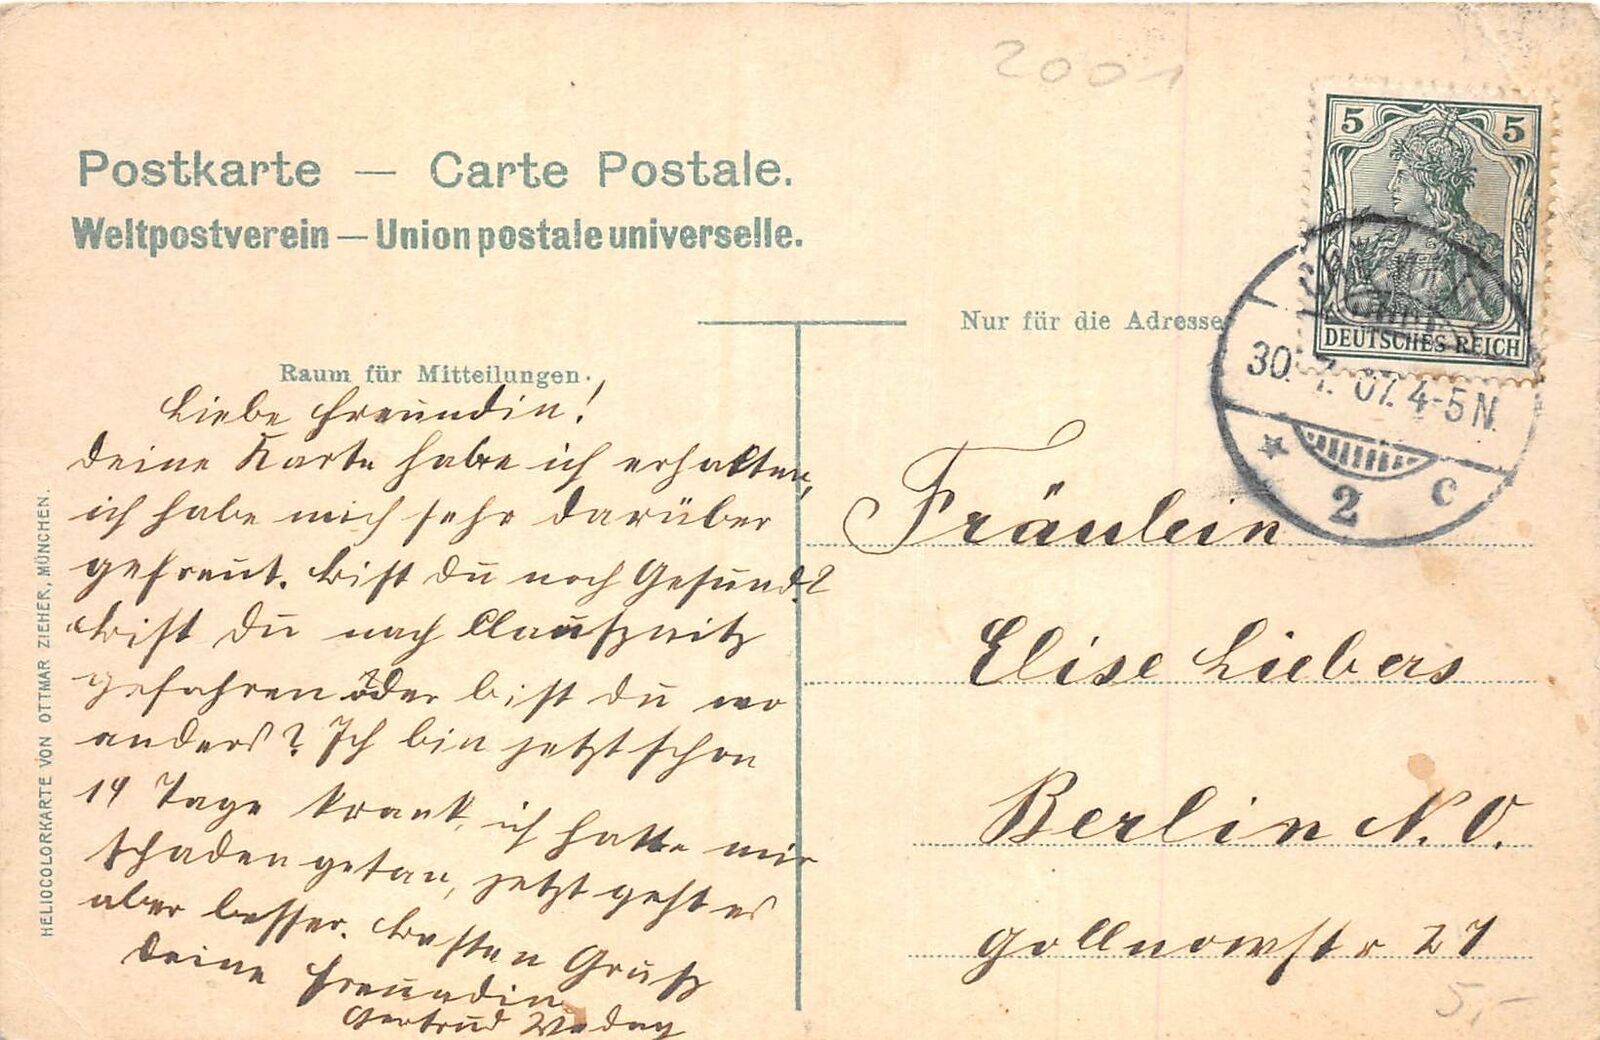 2001
Postkarte — Carte Postale.
Weltpostverein — Union postale universelle.
Nur für die Adresse
Raum für Mitteilungen.
5 5
DEUTSCHES REICH
30. 7. 07. 4-5 N.
* 2 c
Liebe Freundin!
Deine Karte habe ich erhalten,
ich habe mich sehr darüber
gefreut. Bist du noch Gesund?
Bist du nach Claußnitz
gefahren oder bist du wo
anders? Ich bin jetzt schon
14 Tage krank, ich hatte mir
Schaden getan, jetzt geht es
aber besser. Besten Gruß
Deine Freundin
Gertrud
Fräulein
Elise Liebers
Berlin N.O.
Gollnowstr 27
5,-
HELIOCOLORKARTE VON OTTMAR ZIEHER, MÜNCHEN.